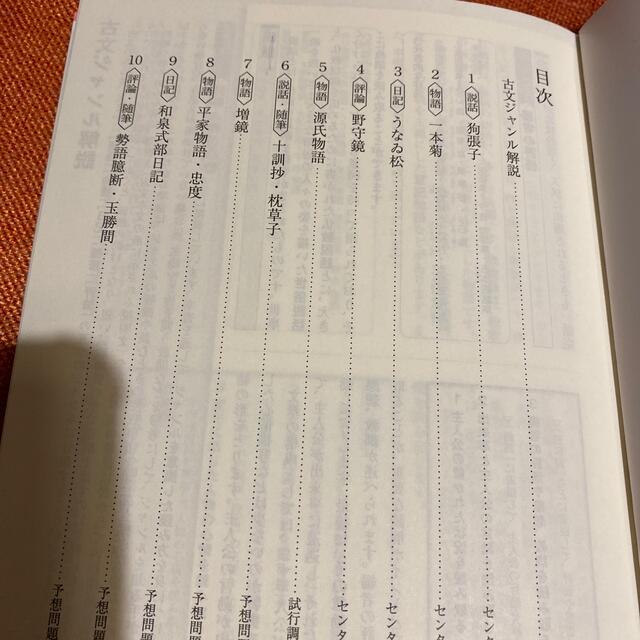 目次
古文ジャンル解説
1 説話 狗張子 センタ
2 物語 一本菊 センタ
3 日記 うなゐ松 センタ
4 評論 野守鏡 センタ
5 物語 源氏物語 試行調
6 説話・随筆 十訓抄・枕草子 予想問題
7 物語 増鏡 予想問題
8 物語 平家物語・忠度 予想問題
9 日記 和泉式部日記 予想問題
10 評論・随筆 勢語臆断・玉勝間 予想問題